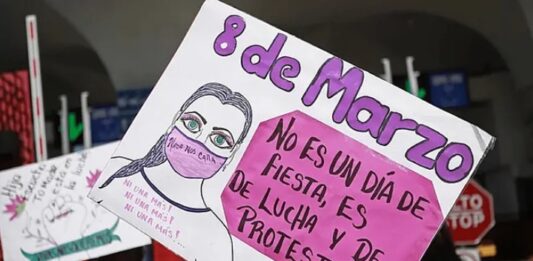 8 de Marzo
Nada nos calla
NI UNA MÁS!
NI UNA MÁS!
NI UNA MÁS!...
NO ES UN DÍA DE
FIESTA, ES
DE LUCHA Y DE
PROTEST
Hija
TO
STOP